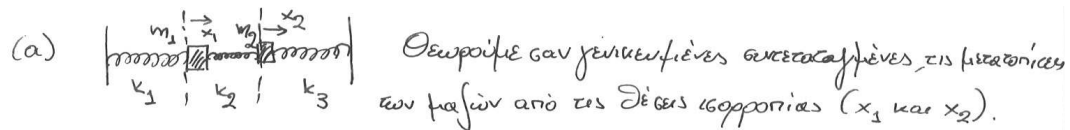 m₁ x₁ m₂ x₂
(α) Θεωρούμε σαν γενικευμένες συντεταγμένες, τις μετατοπίσεις
k₁ k₂ k₃ των μαζών από τις θέσεις ισορροπίας (x₁ και x₂).